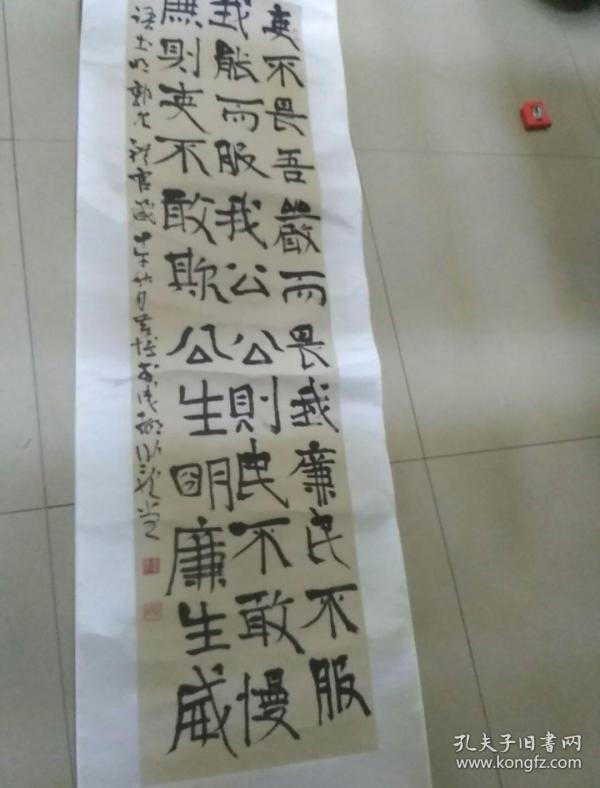 吏不畏吾嚴而畏我廉民不服
我能而服我公公則民不敢慢
廉則吏不敢欺公生明廉生威
語出明郭允禮官箴甲午秋月
孔夫子旧书网
www.kongfz.com